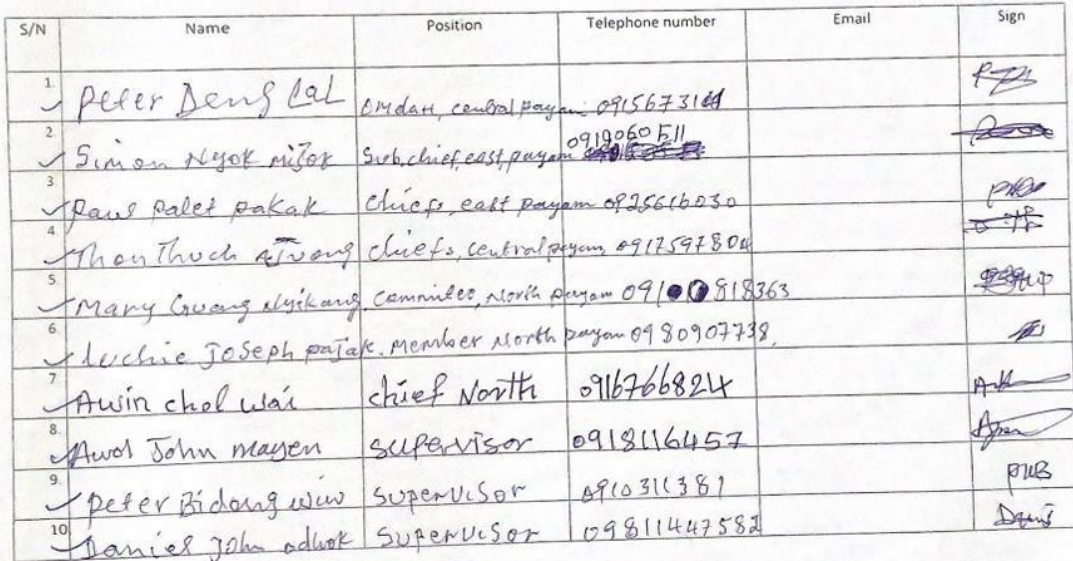 S/N Name Position Telephone number Email Sign
1. Peter Deng Lal Omdah, central payam 0915673101
2. Simon Nyok mijok Sub, chief, east, payam 0919060511
3. Paul palet pakak Chiefs, east payam 0925616030
4. Thon Thuch chiefs, central payam 0917597804
5. Mary Gwang Nyikang, Committee, North payam 0910818363
6. Luchie JoSeph pajak. member North payam 0980907738.
7 Awin chol wai chief North 0916766824
8. Awol John mayen supervisor 0918116457
9. Peter Bidong wiw SuperviSor 0910311381
10 Daniel John adhok SuperviSor 09811447582